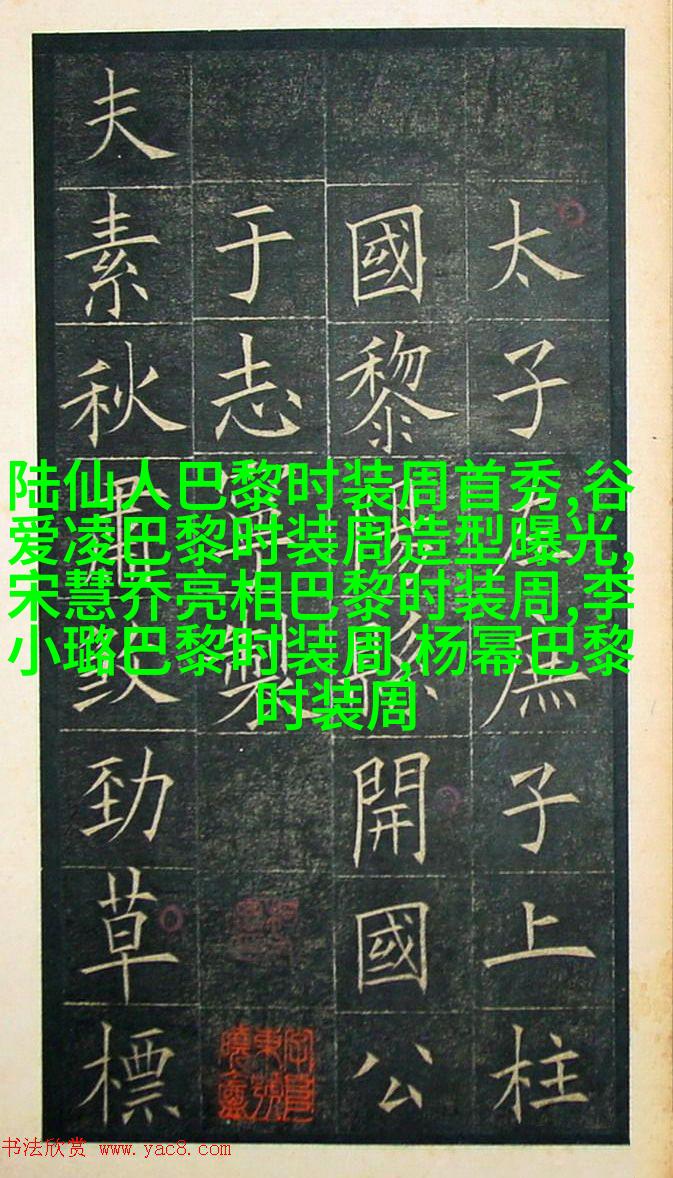 太子左庶子上柱
國黎陽縣開國公
于志寧製
夫素秋肅煞勁草標
陆仙人巴黎时装周首秀,谷
爱凌巴黎时装周造型曝光,
宋慧乔亮相巴黎时装周,李
小璐巴黎时装周,杨幂巴黎
时装周
书法欣赏 www.yac8.com